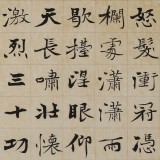 怒髮衝冠憑
欄處瀟瀟雨
歇擡望眼仰
天長嘯壯懷
激烈三十功